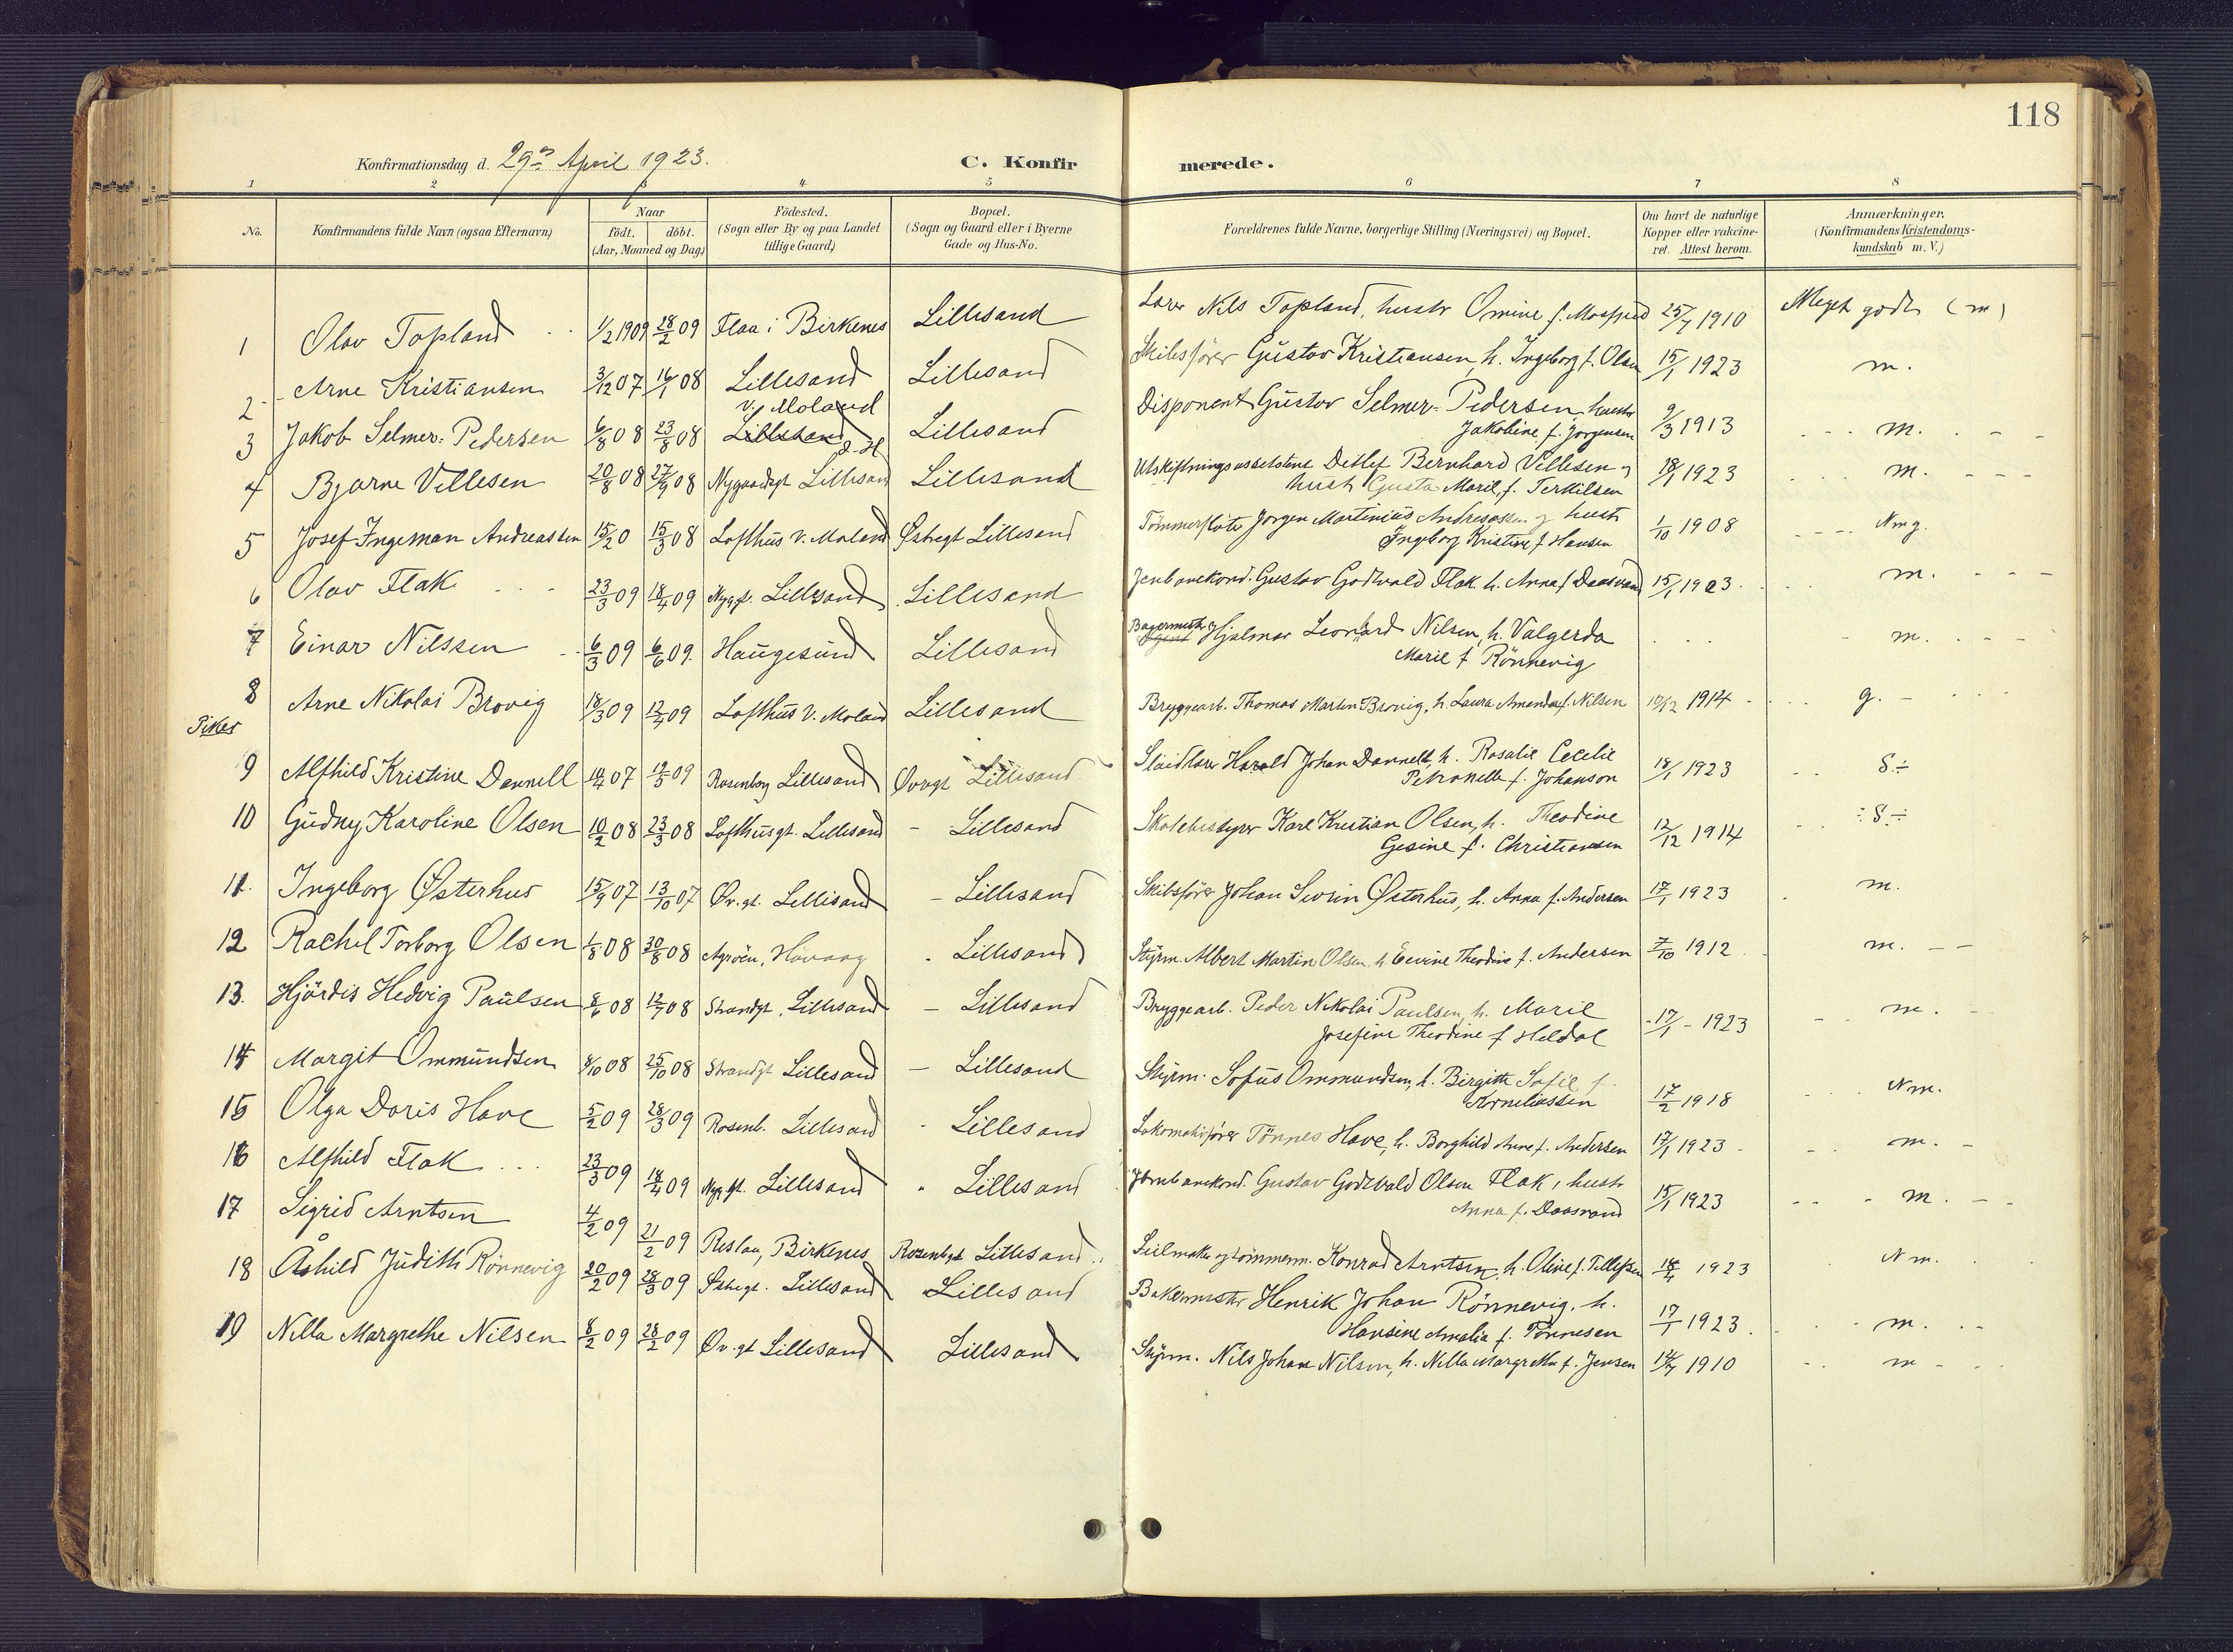 118
Konfirmationsdag d. 29de April 1923. C. Konfir merede.
1 2 3 4 5 6 7 8
No. Konfirmandens fulde Navn (ogsaa Efternavn) Naar födt. döbt. (Aar, Maaned og Dag) Födested. (Sogn eller By og paa Landet tillige Gaard) Bopæl. (Sogn og Gaard eller i Byerne Gade og Hus-No. Forældrenes fulde Navne, borgerlige Stilling (Næringsvei) og Bopæl. Om havt de naturlige Kopper eller vakcineret. Attest herom. Anmærkninger, (Konfirmandens Kristendomskundskab m. V.)
1 Olav Topland 1/2 1909 28/2 09 Flaa i Birkenes Lillesand Lærer Nils Topland, hustr Omine f. 25/7 1910 Meget godt (m)
2 Arne Kristiansen 3/12 07 16/1 08 Lillesand Lillesand Skibsfører Gustav Kristiansen, h. Ingeborg f. Olsen 15/1 1923 m.
3 Jakob Selmer-Pedersen 6/8 08 23/8 08 V. Moland Lillesand Lillesand Disponent Gustav Selmer-Pedersen, hustr
Jakobine f. Jorgensen 9/3 1913 m.
4 Bjarne Villesen 20/8 08 27/9 08 Nygaardsgt Lillesand Lillesand Utskiftningsassistent Detlef Bernhard Villesen og
hustr Gusta Marie, f. Terkilsen 18/1 1923 m.
5 Josef Ingeman Andreassen 15/2 0 15/3 08 Lofthus V. Moland Østregt Lillesand Tømmerfløter Jørgen Martinius Andreassen og hustr
Ingeborg Kristine f Hansen 1/10 1908 Nmg.
6 Olav Flak 23/3 09 18/4 09 Nygt. Lillesand Lillesand Jernbanekond. Gustav Godtvald Flak h. Anna f Daasvand 15/1 1923 m.
7 Einar Nilssen 6/3 09 6/6 09 Haugesund Lillesand Bagermestr Hjalmar Leonhard Nilsen, h. Valgerda
Marie f Rönnevig m.
8 Arne Nikolai Brovig 18/3 09 12/4 09 Lofthus V. Moland Lillesand Bryggearb. Thomas Martin Brovig, h. Laura Amanda f. Nilsen 12/12 1914 g.
Piker
9 Alfhild Kristine Dannell 10/4 07 19/5 09 Rosenborg Lillesand Øvregt Lillesand Sløidlærer Harald Johan Dannell, h. Rosalie Cecilie
Petronella f. Johanson 18/1 1923 S.÷
10 Gudny Karoline Olsen 10/2 08 23/3 08 Lofthusgt. Lillesand - Lillesand Skolebestyrer Karl Kristian Olsen, h. Theodine
Gesine f. Christiansen 12/12 1914 S.÷
11. Ingeborg Østerhus 15/9 07 13/10 07 Øv.gt. Lillesand - Lillesand Skibsfører Johan Sivrin Østerhus, h. Anna f. Andersen 17/1 1923 m.
12 Rachel Torborg Olsen 1/8 08 30/8 08 Agrøen, Høvaag Lillesand Styrm. Albert Martin Olsen h Theodine f. Andersen 7/10 1912 m.
13. Hjördis Hedvig Paulsen 8/6 08 12/7 08 Strandgt. Lillesand - Lillesand Bryggearb. Peder Nikolai Paulsen, h. Marie
Josefine Theodine f Heldal 17/1 - 1923 m.
14 Margit Ommundsen 8/10 08 25/10 08 Strandgt Lillesand - Lillesand Styrm. Sofus Ommundsen, h. Birgitte Sofie f.
Korneliassen 17/2 1918 Nm.
15 Olga Doris Have 5/2 09 28/3 09 Rosenb. Lillesand Lillesand Lokomotivfører Tønnes Have, h. Borghild Anne f. Andersen 17/1 1923 m.
16 Alfhild Flak 23/3 09 18/4 09 Nygt. Lillesand " Lillesand Jernbanekond. Gustav Godtvald Olsen Flak, hustr
Anna f. Daasvand 15/1 1923 m.
17 Sigrid Arntsen 4/2 09 21/2 09 Reslau, Birkenes Rosenbgt Lillesand Seilmaker og tømmerm. Konrad Arntsen, h. Oline f. Tellefsen 18/4 1923 Nm.
18 Åshild Judith Rönnevig 20/2 09 28/3 09 Østregt. Lillesand Lillesand Bakermestr Henrik Johan Rönnevig. h.
Hansine Amalia f. Tönnesen 17/1 1923. m.
19 Nilla Margrethe Nilsen 8/2 09 28/2 09 Øv.gt Lillesand Lillesand Styrm. Nils Johan Nilsen, h. Nilla Margrethe f. Jensen 14/7 1910 m